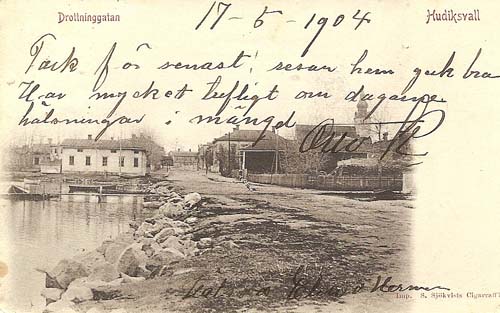 Drottninggatan
17-5-1904
Hudiksvall
Tack för senast! resan hem gick bra
Har mycket trefligt om dagarne
hälsningar i mängd Otto
Imp. S. Sjökvists Cigarraff